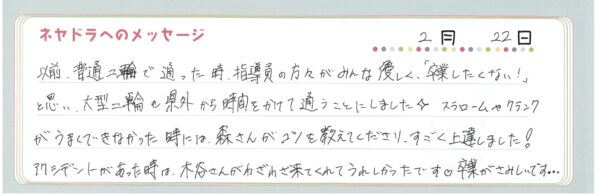 ネヤドラへのメッセージ
2月 22日
以前、普通二輪で通った時、指導員の方々がみんな優しく、「卒業したくない!」
と思い、大型二輪も県外から時間をかけて通うことにしました☆ スラロームやクランク
がうまくできなかった時には、森さんがコツを教えてくださり、すごく上達しました!
アクシデントがあった時は、木谷さんがわざわざ来てくれてうれしかったです♡ 卒業がさみしいです…